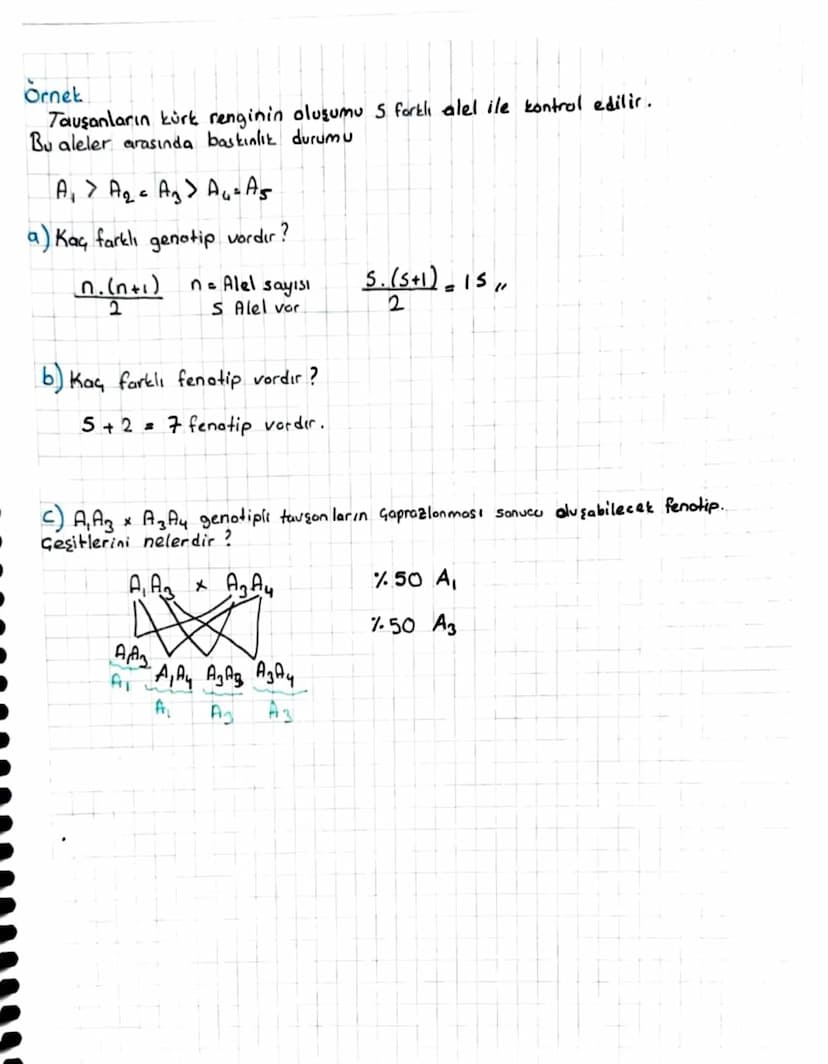 Örnek
Tavşanların kürk renginin oluşumu 5 farklı alel ile kontrol edilir.
Bu aleler arasında baskınlık durumu
A₁ > A₂ = A₃ > A₄ = A₅
a) Kaç farklı genotip vardır?
n.(n+1)/2 n = Alel sayısı 5.(5+1)/2 = 15 //
5 Alel var
b) Kaç farklı fenotip vardır?
5 + 2 = 7 fenotip vardır.
c) A₁A₃ x A₃A₄ genotipli tavşanların çaprazlanması sonucu oluşabilecek fenotip.
çeşitlerini nelerdir?
A₁A₃ x A₃A₄ %50 A₁
%50 A₃
A₁A₃ A₁A₄ A₃A₃ A₃A₄
A₁ A₁ A₃ A₃